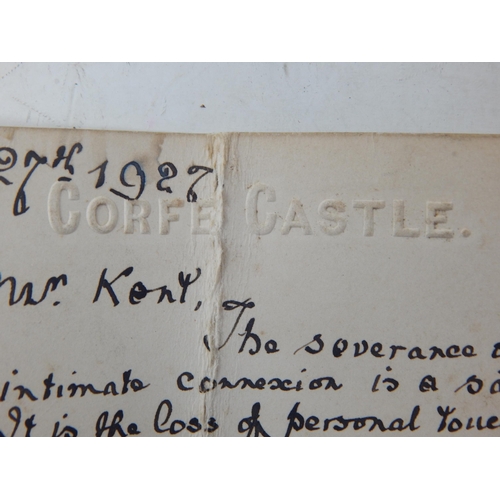 27th 1927
CORFE CASTLE.
Mr. Kent,
The severance
intimate connexion is a
It is the loss of personal